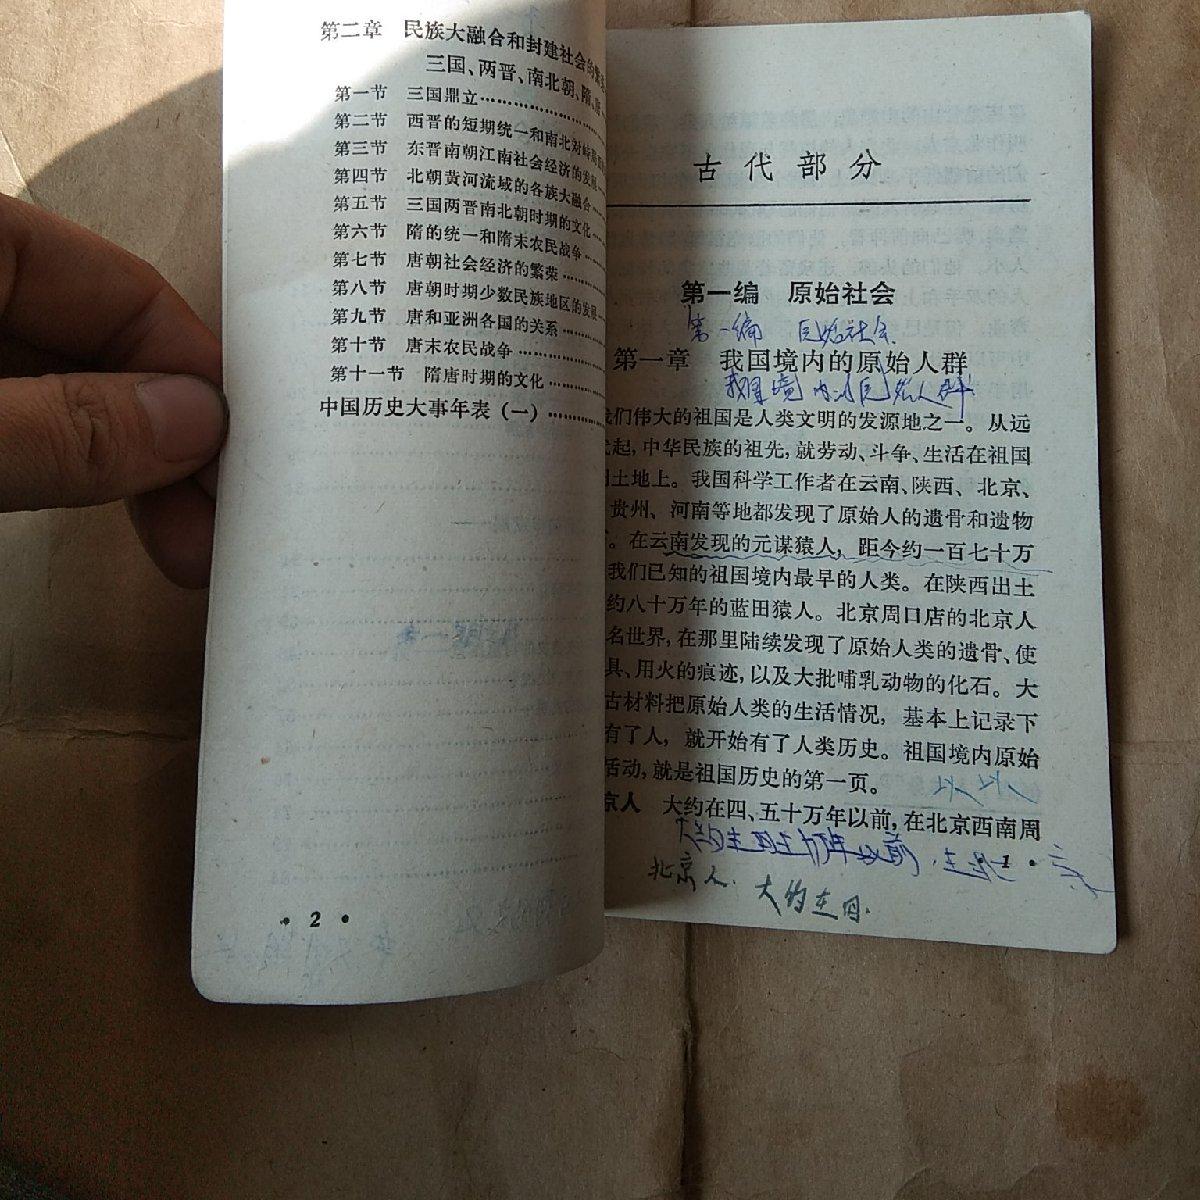 第二章 民族大融合和封建社会的繁荣
三国、两晋、南北朝、隋、唐
第一节 三国鼎立
第二节 西晋的短期统一和南北对峙
第三节 东晋南朝江南社会经济的发展
第四节 北朝黄河流域的各族大融合
第五节 三国两晋南北朝时期的文化
第六节 隋的统一和隋末农民战争
第七节 唐朝社会经济的繁荣
第八节 唐朝时期少数民族地区的发展
第九节 唐和亚洲各国的关系
第十节 唐末农民战争
第十一节 隋唐时期的文化
中国历史大事年表（一）
·2·
古代部分
第一编 原始社会
第一编 原始社会
第一章 我国境内的原始人群
我国境内的原始人群
我们伟大的祖国是人类文明的发源地之一。从远
起，中华民族的祖先，就劳动、斗争、生活在祖国
土地上。我国科学工作者在云南、陕西、北京、
贵州、河南等地都发现了原始人的遗骨和遗物
。在云南发现的元谋猿人，距今约一百七十万
我们已知的祖国境内最早的人类。在陕西出土
约八十万年的蓝田猿人。北京周口店的北京人
名世界，在那里陆续发现了原始人类的遗骨、使
具、用火的痕迹，以及大批哺乳动物的化石。大
古材料把原始人类的生活情况，基本上记录下
有了人，就开始有了人类历史。祖国境内原始
活动，就是祖国历史的第一页。
京人 大约在四、五十万年以前，在北京西南周
·1·
北京人 大约在四